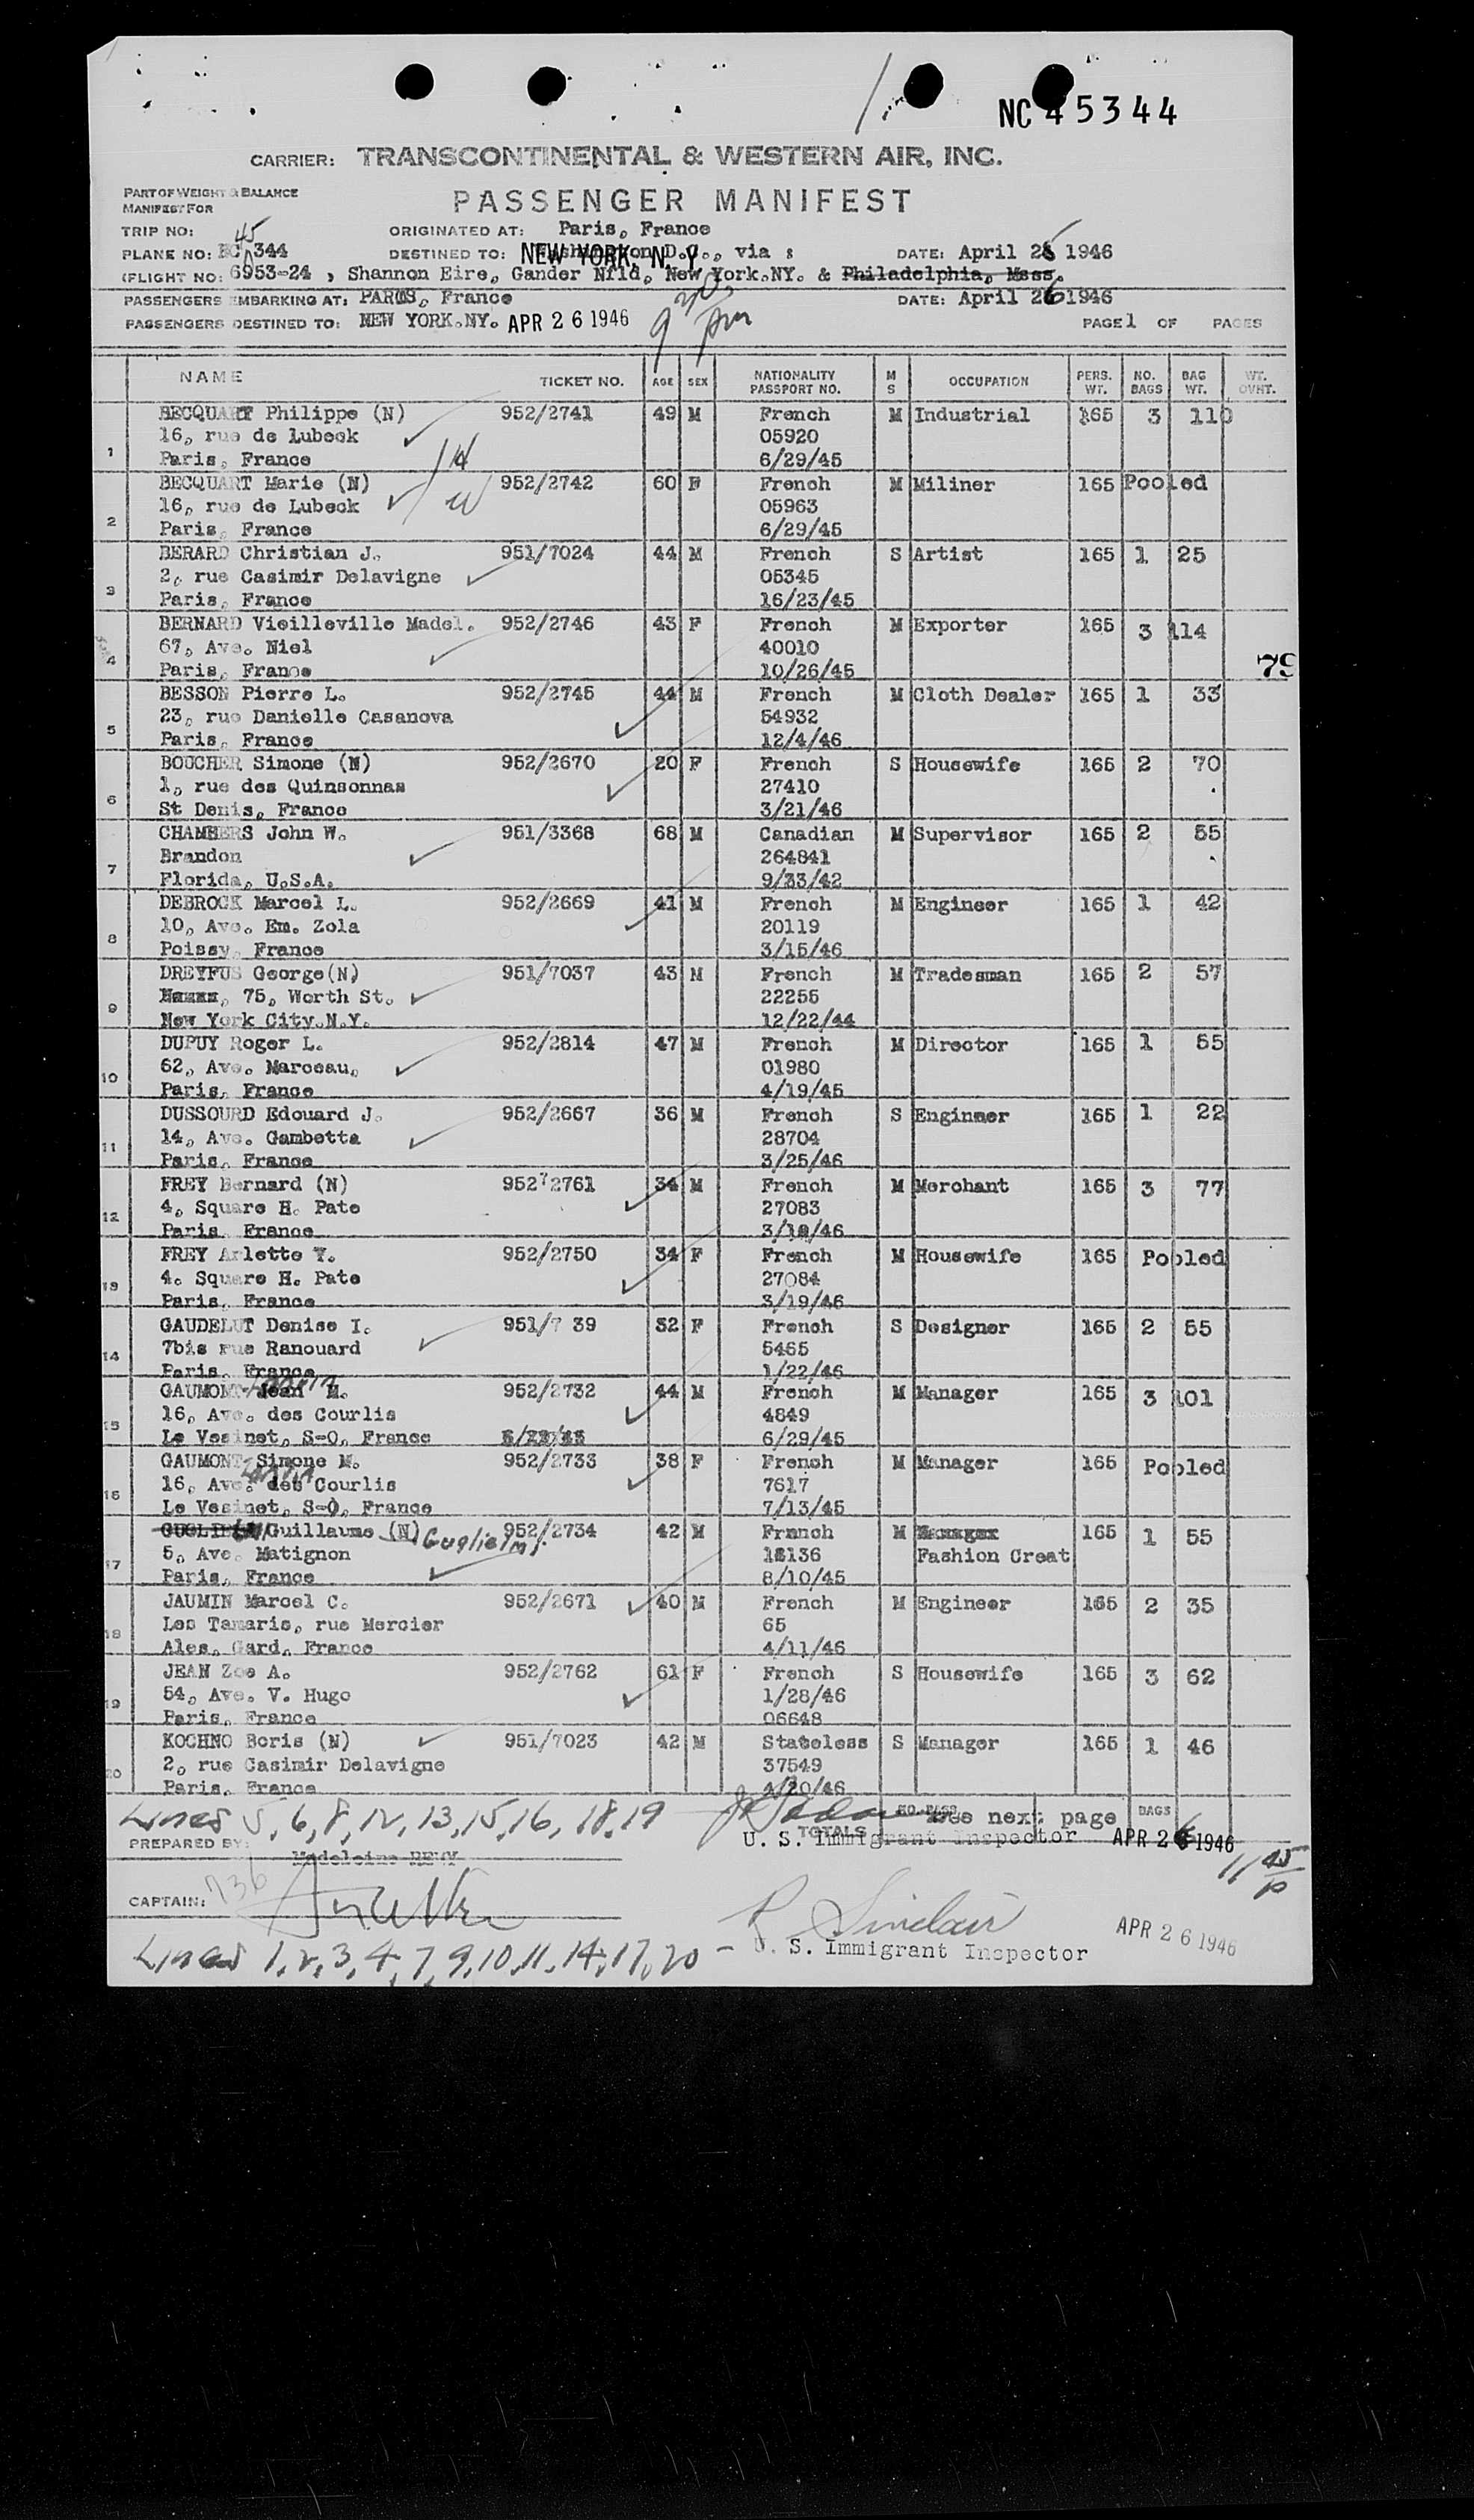 NC 45344
CARRIER: TRANSCONTINENTAL & WESTERN AIR, INC.
PART OF WEIGHT & BALANCE
MANIFEST FOR
PASSENGER MANIFEST
TRIP NO: ORIGINATED AT: Paris, France
45
PLANE NO: 344 DESTINED TO: NEW YORK, N.Y. via : DATE: April 26 1946
(FLIGHT NO: 6953-24 , Shannon Eire, Gander Nfld, New York.NY. & Philadelphia, Mass.
PASSENGERS EMBARKING AT: PARIS, France DATE: April 26 1946
PASSENGERS DESTINED TO: NEW YORK.NY. APR 26 1946 9 30 pm PAGE 1 OF PAGES
NAME TICKET NO. AGE SEX NATIONALITY PASSPORT NO. M S OCCUPATION PERS. WT. NO. BAGS BAG WT. WT. OVHT.
1 BECQUART Philippe (N) 952/2741 49 M French M Industrial 165 3 110
16, rue de Lubeck 05920
Paris, France 6/29/45
2 BECQUART Marie (N) 952/2742 60 F French M Miliner 165 Pooled
16, rue de Lubeck 05963
Paris, France 6/29/45
3 BERARD Christian J. 951/7024 44 M French S Artist 165 1 25
2, rue Casimir Delavigne 05345
Paris, France 16/23/45
4 BERNARD Vieilleville Madel. 952/2746 43 F French M Exporter 165 3 114
67, Ave. Niel 40010
Paris, France 10/26/45
79
5 BESSON Pierre L. 952/2745 44 M French M Cloth Dealer 165 1 33
23, rue Danielle Casanova 54932
Paris, France 12/4/46
6 BOUCHER Simone (N) 952/2670 20 F French S Housewife 165 2 70
1, rue des Quinsonnas 27410
St Denis, France 3/21/46
7 CHAMBERS John W. 951/3368 68 M Canadian M Supervisor 165 2 55
Brandon 264841
Florida, U.S.A. 9/33/42
8 DEBROCK Marcel L. 952/2669 41 M French M Engineer 165 1 42
10, Ave. Em. Zola 20119
Poissy, France 3/15/46
9 DREYFUS George(N) 951/7037 43 M French M Tradesman 165 2 57
75, Worth St. 22255
New York City.N.Y. 12/22/44
10 DUPUY Roger L. 952/2814 47 M French M Director 165 1 55
62, Ave. Marceau, 01980
Paris, France 4/19/45
11 DUSSOURD Edouard J. 952/2667 36 M French S Engineer 165 1 22
14, Ave. Gambetta 28704
Paris, France 3/25/46
12 FREY Bernard (N) 952/2761 34 M French M Merchant 165 3 77
4, Square H. Pate 27083
Paris, France 3/19/46
13 FREY Arlette Y. 952/2750 34 F French M Housewife 165 Pooled
4. Square H. Pate 27084
Paris, France 3/19/46
14 GAUDELUT Denise I. 951/7 39 32 F French S Designer 165 2 55
7bis rue Ranouard 5465
Paris, France 1/22/46
15 GAUMONT- Jean M. 952/2732 44 M French M Manager 165 3 101
16, Ave. des Courlis 4849
Le Vesinet, S-O, France 6/29/45
16 GAUMONT- Simone M. 952/2733 38 F French M Manager 165 Pooled
16, Ave. des Courlis 7617
Le Vesinet, S-O, France 7/13/45
17 Guillaume (N) Guglielmi 952/2734 42 M French M 165 1 55
5, Ave. Matignon 18136 Fashion Creat
Paris, France 8/10/45
18 JAUMIN Marcel C. 952/2671 40 M French M Engineer 165 2 35
Les Tamaris, rue Mercier 65
Ales, Gard, France 4/11/46
19 JEAN Zoe A. 952/2762 61 F French S Housewife 165 3 62
54, Ave. V. Hugo 1/28/46
Paris, France 06648
20 KOCHNO Boris (N) 951/7023 42 M Stateless S Manager 165 1 46
2, rue Casimir Delavigne 37549
Paris, France 4/20/46
Lines 5, 6, 8, 12, 13, 15, 16, 18, 19 NO. PASS. see next page BAGS
TOTALS
PREPARED BY: U. S. Immigrant Inspector APR 26 1946
Madeleine REMY 11 45 p
CAPTAIN: 736
R Sinclair APR 26 1946
Lines 1, 2, 3, 4, 7, 9, 10, 11, 14, 17, 20 - U. S. Immigrant Inspector